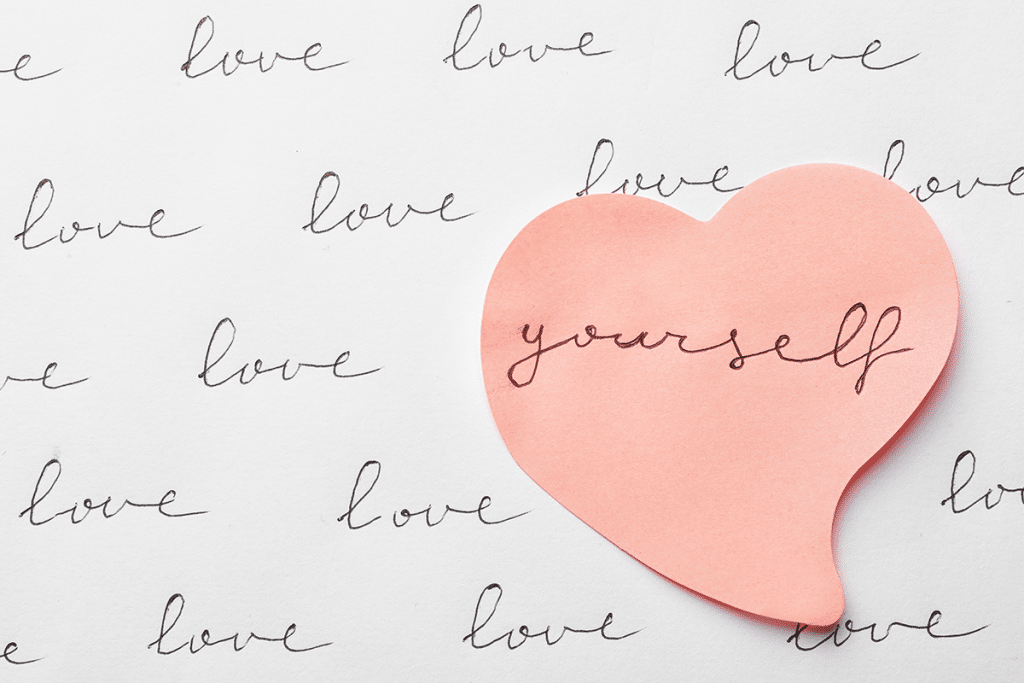 e love love love
love love love love
ve love yourself
love love lo
e love love love